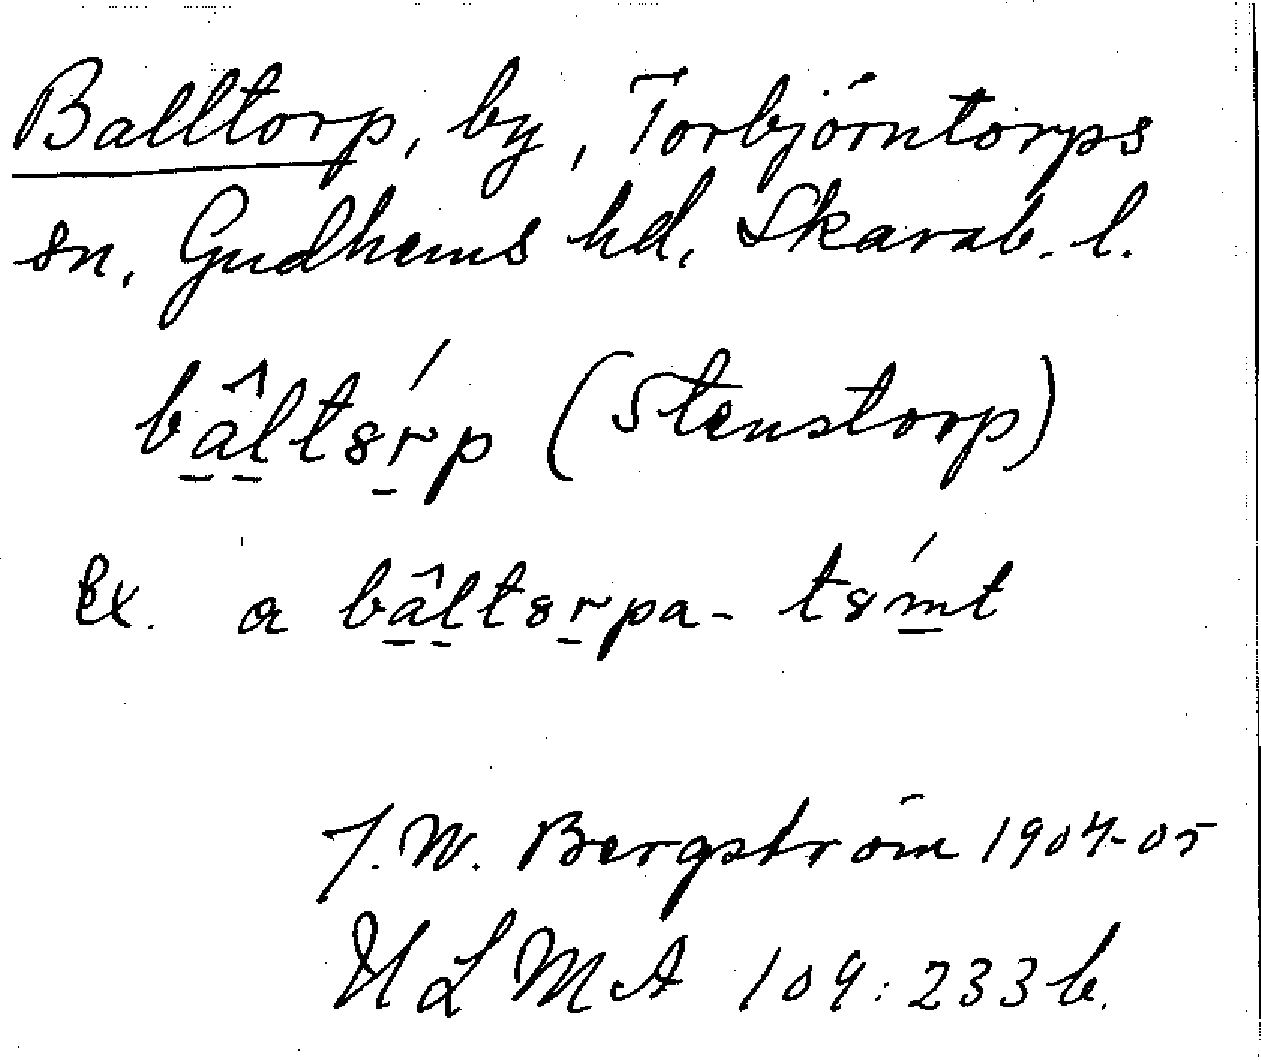 Balltorp, by, Torbjörntorps
sn, Gudhems hd, Skarab. l.
bâ̠l̠tsŕ̠p (Stenstorp)
Ex. a bâ̠l̠tsr̠pa- tsḿ̠t
J. W. Bergström 1904-05
ULMA 109:233 b.